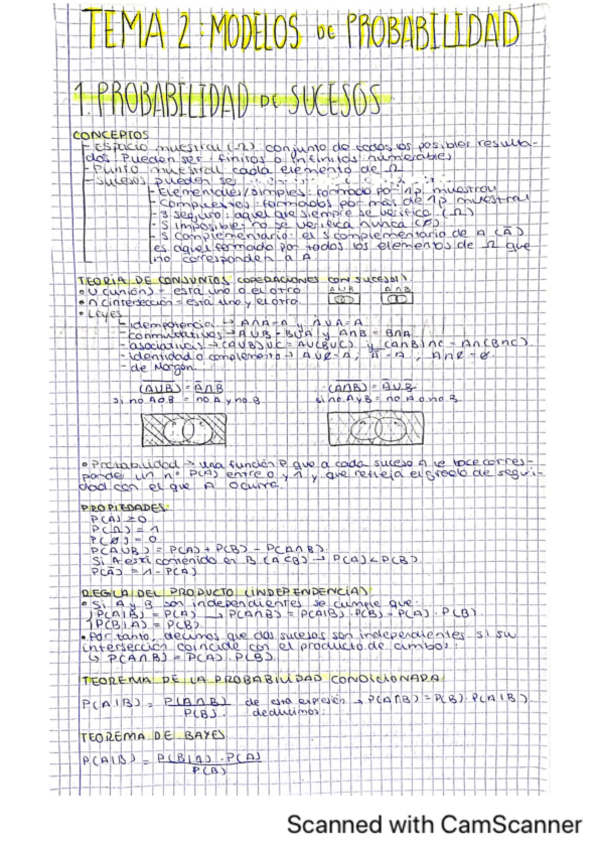 TEMA 2: MODELOS DE PROBABILIDAD
1. PROBABILIDAD DE SUCESOS
CONCEPTOS
- Espacio muestral (Ω): conjunto de todos los posibles resulta-
dos. Pueden ser: finitos o infinitos numerables
- Punto muestral: cada elemento de Ω
- Sucesos pueden ser:
- Elementales/simples: formado por 1 p. muestral
- Compuestos: formados por más de 1 p muestral
- S seguro: aquel que siempre se verifica (Ω)
- S imposible: no se verifica nunca (Ø)
- S complementario: el S complementario de A (Ā)
es aquel formado por todos los elementos de Ω que
no corresponden a A
TEORÍA DE CONJUNTOS (OPERACIONES CON SUCESOS)
• U (unión) = está uno o el otro
A∪B A∩B
• ∩ (intersección = está uno y el otro
• Leyes
- idempotencia → A∩A=A y A∪A=A
- conmutativas → A∪B = B∪A y A∩B = B∩A
- asociativas → (A∪B)∪C = A∪(B∪C) y (A∩B)∩C = A∩(B∩C)
- identidad o complemento →
- de Morgan:
(A∪B) = Ā∩B̄ (A∩B) = Ā∪B̄
si no A o B = no A y no B si no A y B = no A o no B
• Probabilidad → una función P que a cada suceso A le hace corres-
ponder un nº P(A) entre 0 y 1 y que refleja el grado de seguri-
dad con el que A ocurra.
PROPIEDADES
P(A) ≥ 0
P(Ω) = 1
P(Ø) = 0
P(A∪B) = P(A) + P(B) - P(A∩B)
Si A está contenido en B (A⊂B) → P(A) < P(B)
P(Ā) = 1 - P(A)
REGLA DEL PRODUCTO (INDEPENDENCIA)
• Si A y B son independientes se cumple que:
P(A|B) = P(A) → P(A∩B) = P(A|B) · P(B) = P(A) · P(B)
P(B|A) = P(B)
• Por tanto, decimos que dos sucesos son independientes si su
intersección coincide con el producto de ambos:
↳ P(A∩B) = P(A) · P(B)
TEOREMA DE LA PROBABILIDAD CONDICIONADA
P(A|B) = P(A∩B) / P(B) de esta expresión deducimos: → P(A∩B) = P(B) · P(A|B)
TEOREMA DE BAYES
P(A|B) = P(B|A) · P(A) / P(B)
Scanned with CamScanner